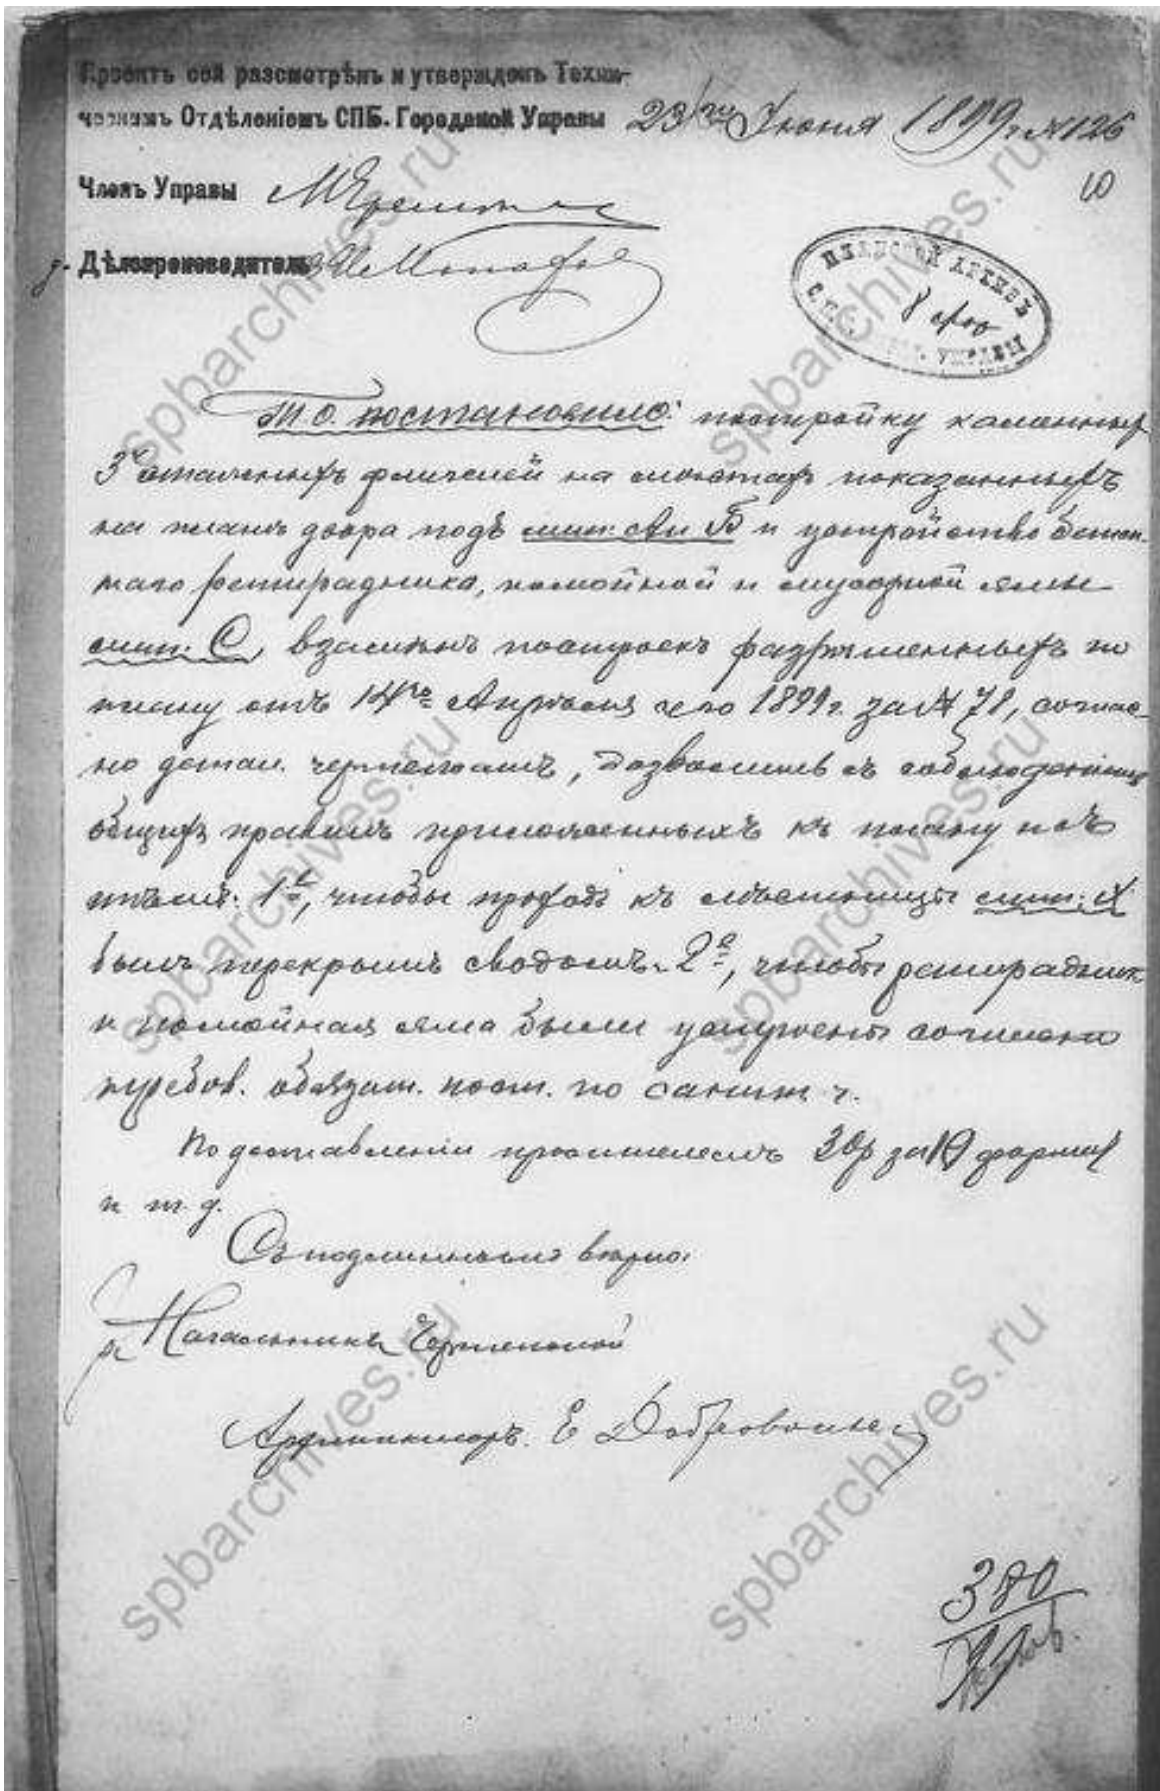 Проектъ сей разсмотрѣнъ и утвержденъ Техни-
ческимъ Отдѣленіемъ СПБ. Городской Управы 23го Іюня 1899 г. № 126
10
Членъ Управы
Дѣлопроизводитель
ПЛАНОВОЙ АРХИВЪ
УПРАВЫ
Т. О. постановило: постройку каменныхъ
3х этажныхъ флигелей на мѣстахъ показанныхъ
на планѣ двора подъ лит: А и Б и устройство бетон-
наго ретирадника, помойной и мусорной ямы
лит: С, взамѣнъ построекъ разрѣшенныхъ по
плану отъ 14го Апрѣля сего 1899 г. за № 78, соглас-
но детал. чертежамъ, дозволить съ соблюденіемъ
общихъ правилъ приложенныхъ къ плану и съ
тѣмъ: 1е, чтобы проходъ къ лѣстницѣ лит: Х
былъ перекрытъ сводомъ. 2е, чтобы ретирадникъ
и помойная яма были устроены согласно
требов. обязат. пост. по санит. ч.
По доставленіи просителемъ 30р за 10 формы
и т. д.
Съ подлиннымъ вѣрно:
Начальникъ Чертежной
Архитекторъ Е
380
spbarchives.ru
spbarchives.ru
spbarchives.ru
spbarchives.ru
spbarchives.ru
spbarchives.ru